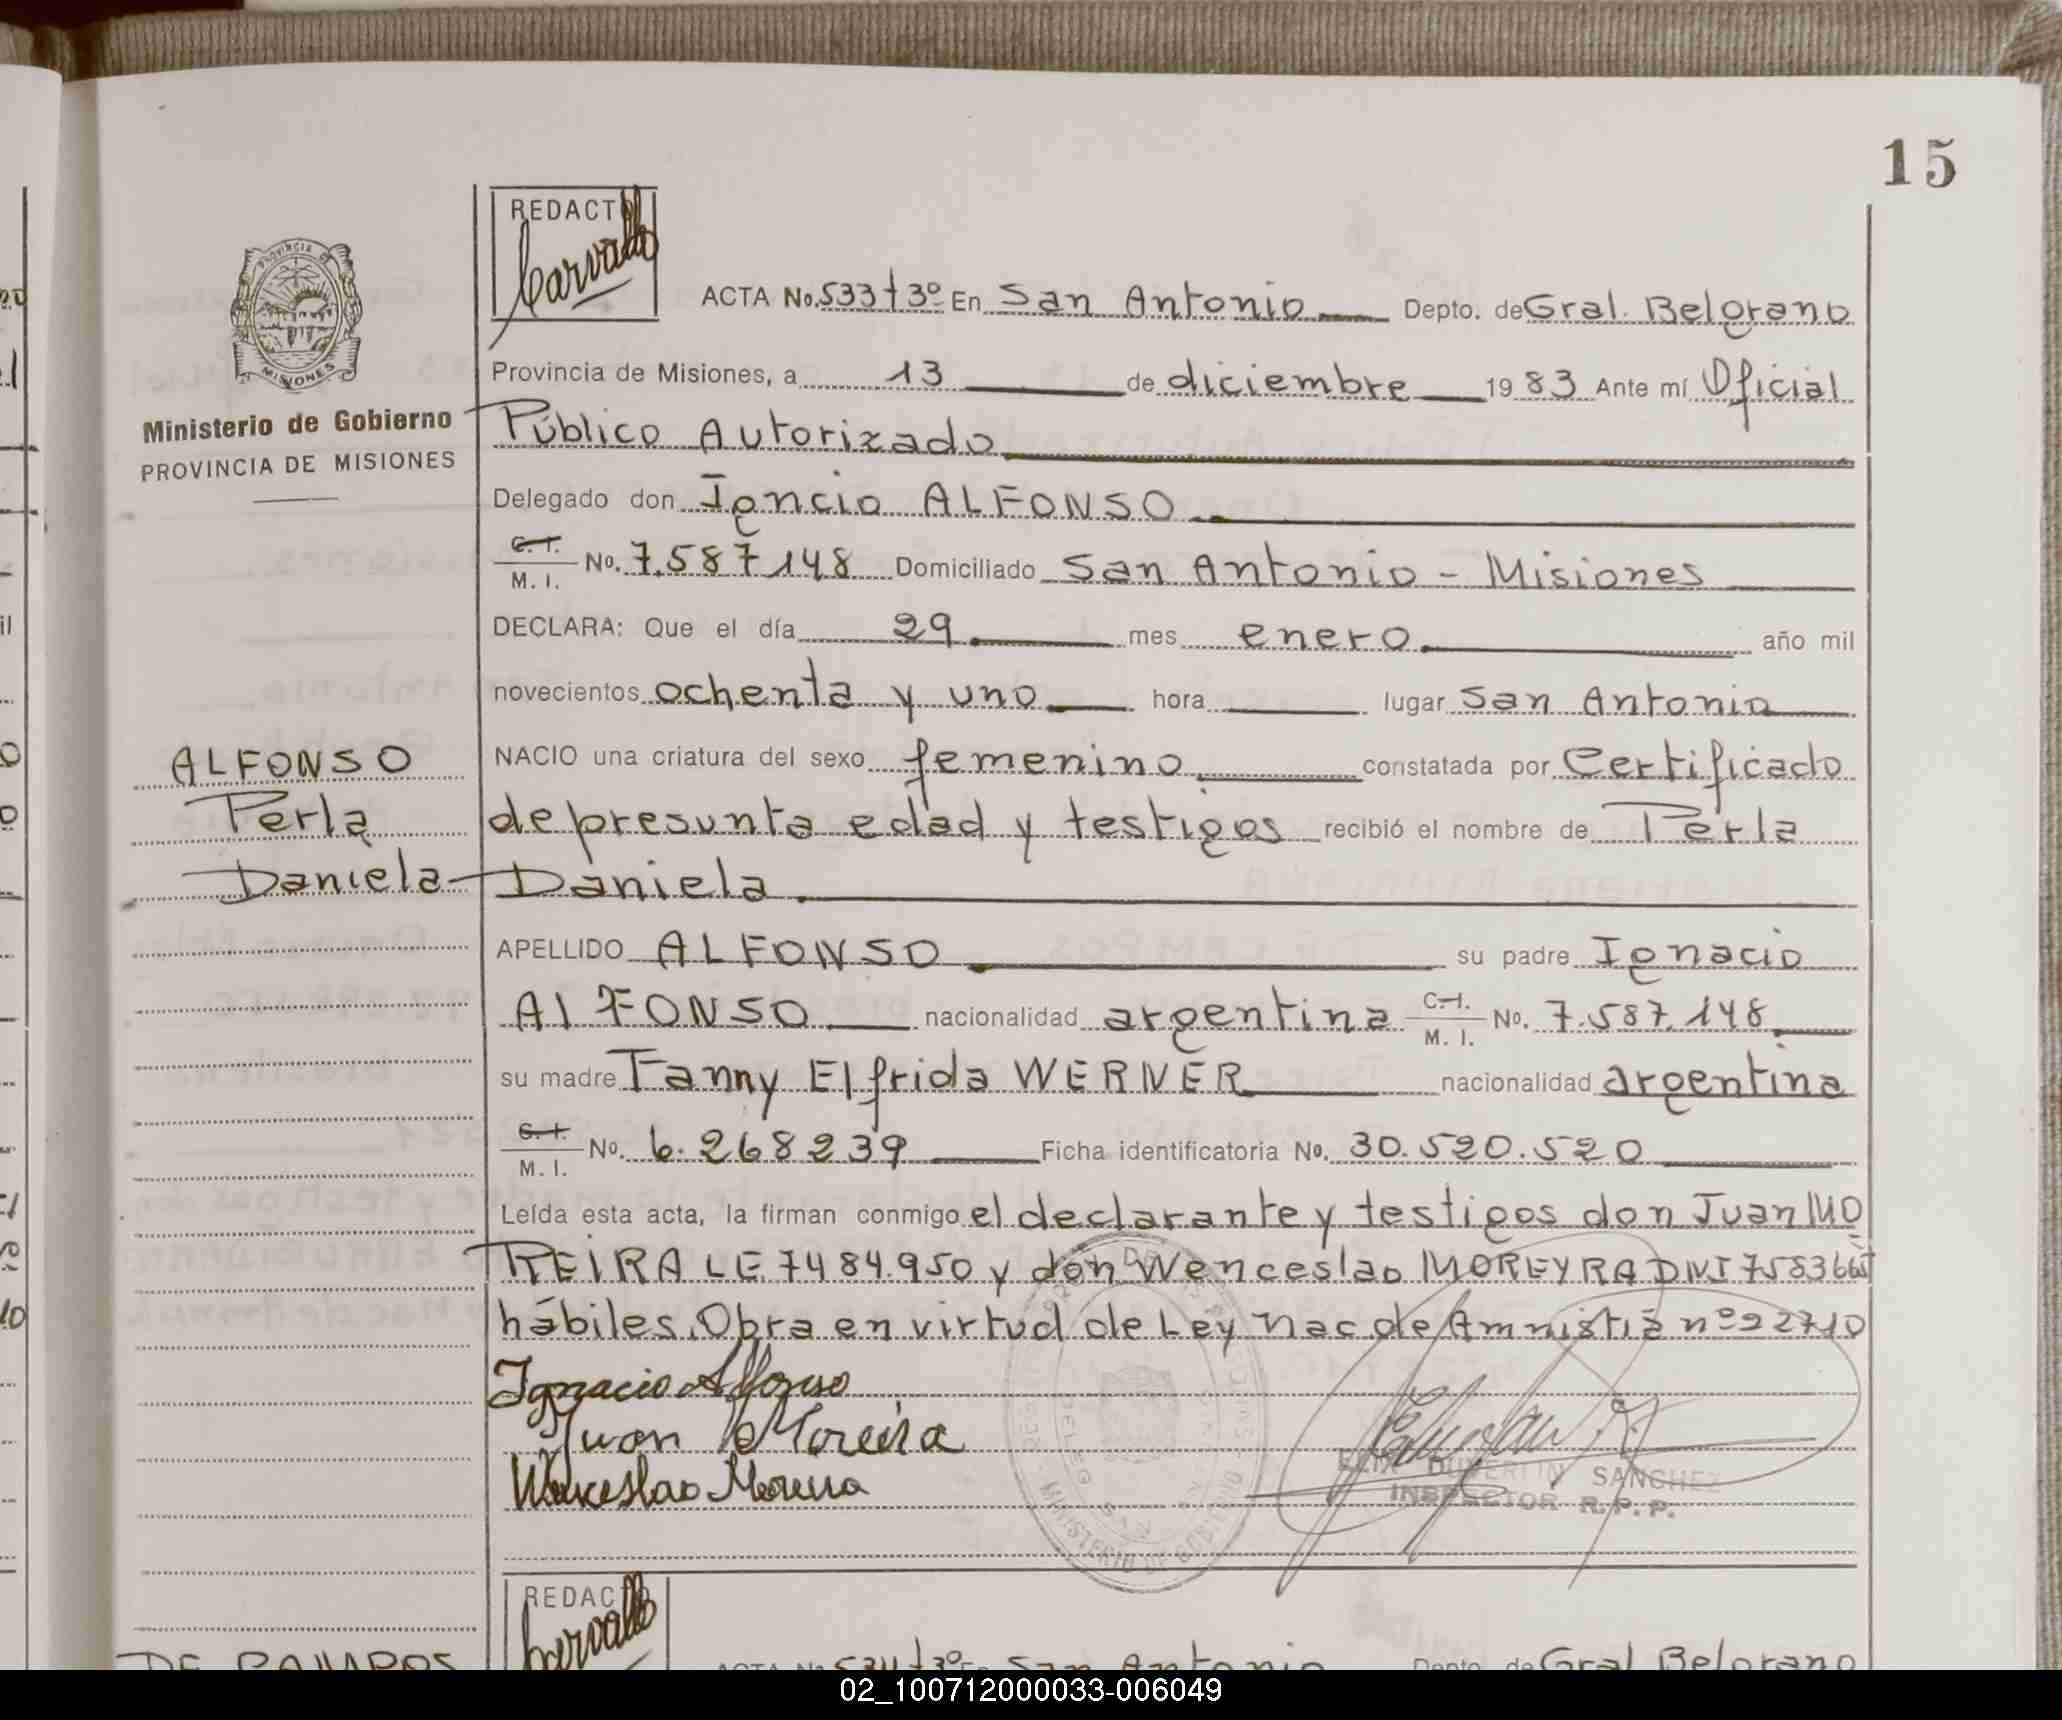 15
REDACTO
Carvallo
PROVINCIA DE
MISIONES
Ministerio de Gobierno
PROVINCIA DE MISIONES
ACTA No. 533 t 3º En San Antonio Depto. de Gral. Belgrano
Provincia de Misiones, a 13 de diciembre 1983 Ante mí Oficial
Público Autorizado
Delegado don Igncio ALFONSO
C. I. / M. I. No. 7.587.148 Domiciliado San Antonio - Misiones
DECLARA: Que el día 29 mes enero año mil
novecientos ochenta y uno hora lugar San Antonio
ALFONSO
Perla
Daniela
NACIO una criatura del sexo femenino constatada por Certificado
de presunta edad y testigos recibió el nombre de Perla
Daniela
APELLIDO ALFONSO su padre Ignacio
AlFONSO nacionalidad argentina C.I. / M. I. No. 7.587.148
su madre Fanny Elfrida WERNER nacionalidad argentina
C. I. / M. I. No. 6.268239 Ficha identificatoria No. 30.520.520
Leída esta acta, la firman conmigo el declarante y testigos don Juan MO
REIRA LE 7484.950 y don Wenceslao MOREYRA DNI
hábiles. Obra en virtud de Ley Nac de Amnistia nº 22710
Ignacio Alfonso
Juan Moreira
Wenceslao Moreira
MINISTERIO DE GOBIERNO
SANCHEZ
INSPECTOR R. P. P.
REDAC
Carvallo
DE CAMPOS
ACTA No. 534 t 3º En San Antonio Depto. de Gral Belgrano
02_100712000033-006049